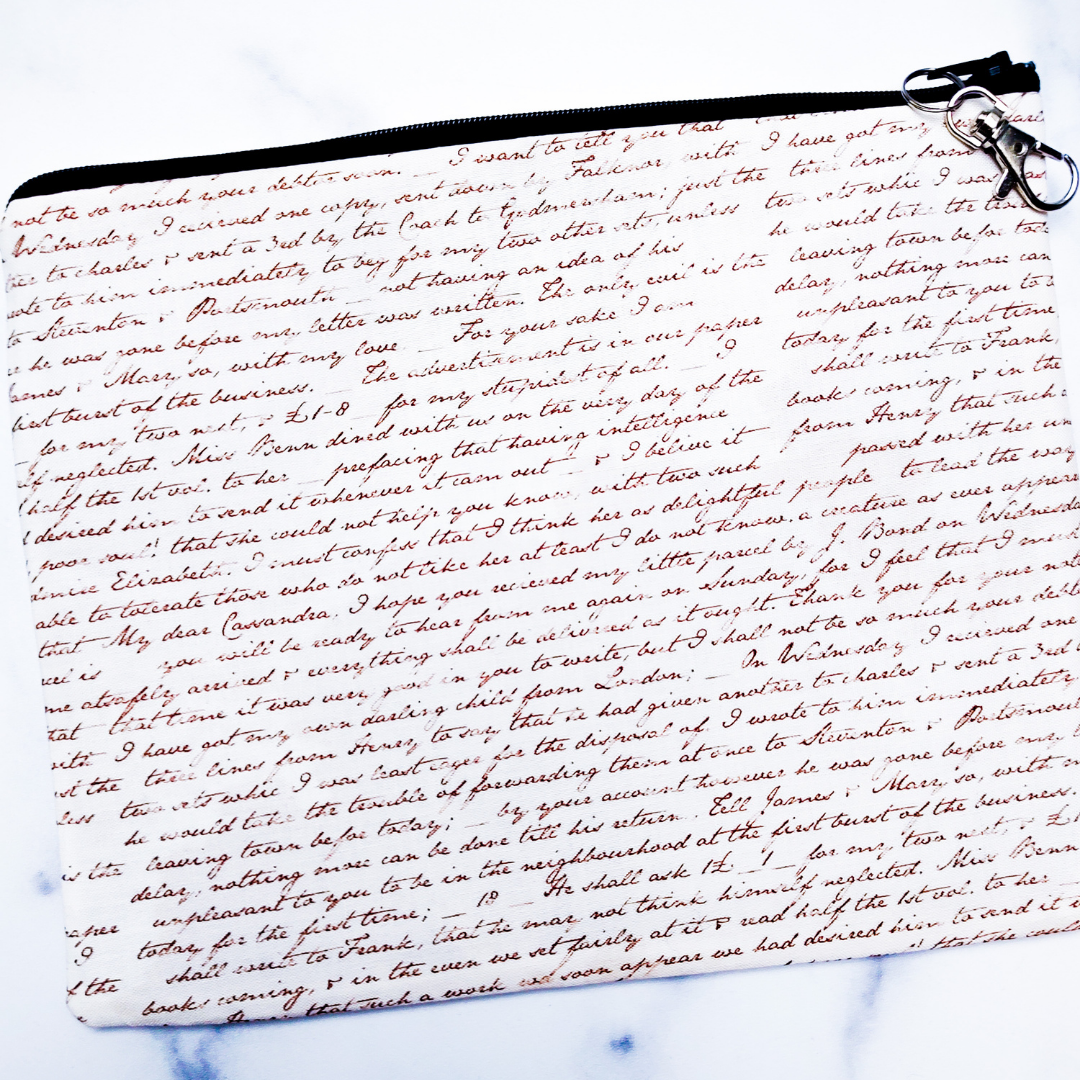 not be so much your debtor soon. _ I want to tell you that
Wednesday I recieved one copy, sent down by Falknor, with I have got my
ther to charles & sent a 3rd by the Coach to Godmersham; just the three lines from
ote to him immediately to beg for my two other sets, unless two sets whic I was
to Steventon & Portsmouth _ not having an idea of his he would take the trou
he was gone before my letter was written. The only evil is the leaving town befor toda
ames & Mary so, with my love _ For your sake I am delay, nothing more can
first burst of the business. _ The advertisement is in our paper unpleasant to you to b
for my two next, & £1-8 _ for my stupidest of all. _ I today for the first time
lf neglected. Miss Benn dined with us on the very day of the shall write to Frank
half the 1st vol. to her _ prefacing that having intelligence books coming, & in the
desired him to send it whenever it cam out _ & I belive it from Henry that such a
poor soul! that she could not help you know, with two such passed with her un
dmire Elizabeth. I must confess that I think her as delightful people to lead the way
able to tolerate those who do not like her at least I do not know. a creature as ever appeare
that My dear Cassandra, I hope you recieved my little parcel by J. Bond on Wednesda
vel is you will be ready to hear from me again on Sunday, for I feel that I must
me atsafely arrived & everything shall be delivered as it ought. Thank you for your note
hat that time it was very good in you to write, but I shall not be so much your debto
with I have got my own darling child from London; _ On Wednesday I recieved one
st the three lines from Henry to say that he had given another to charles & sent a 3rd b
less two sets whic I was least eager for the disposal of. I wrote to him immediately
he would take the trouble of forwarding them at once to Steventon & Portsmout
is the leaving town befor today; _ by your account however he was gone before my l
delay, nothing more can be done till his return. Tell James & Mary so, with m
unpleasant to you to be in the neighbourhood at the first burst of the business.
aper today for the first time; _ 18 _ He shall ask 1£ _ 1 _ for my two next, & £1
I shall write to Frank, that he may not think himself neglected. Miss Benn
f the books coming, & in the even we set fairly at it & read half the 1st vol. to her
Henry that such a work wd soon appear we had desired him to send it
that she coul